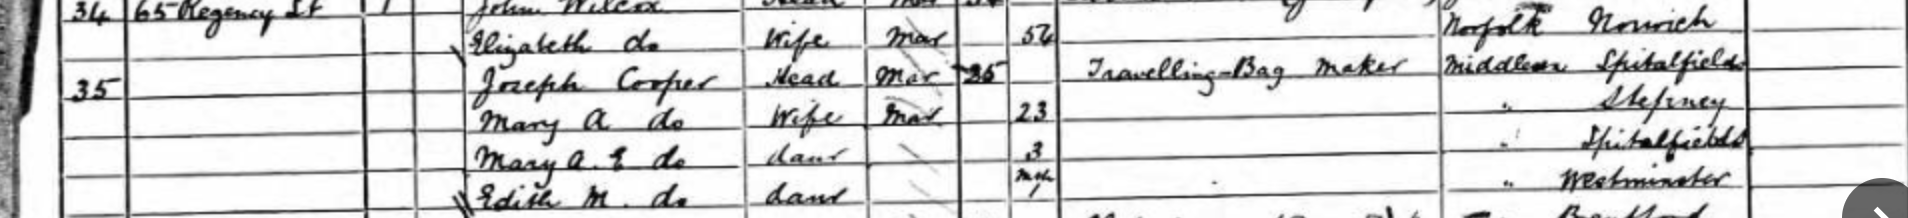 34 65 Regency St 1 John Wilcox Head Mar
Elizabeth do Wife Mar 54 Norfolk Norwich
35 Joseph Cooper Head Mar 25 Travelling-Bag Maker Middlesex Spitalfields
Mary A do Wife Mar 23 " Stepney
Mary A. E do daur 3 " Spitalfields
Edith M. do daur 1 " Westminster
Brentford